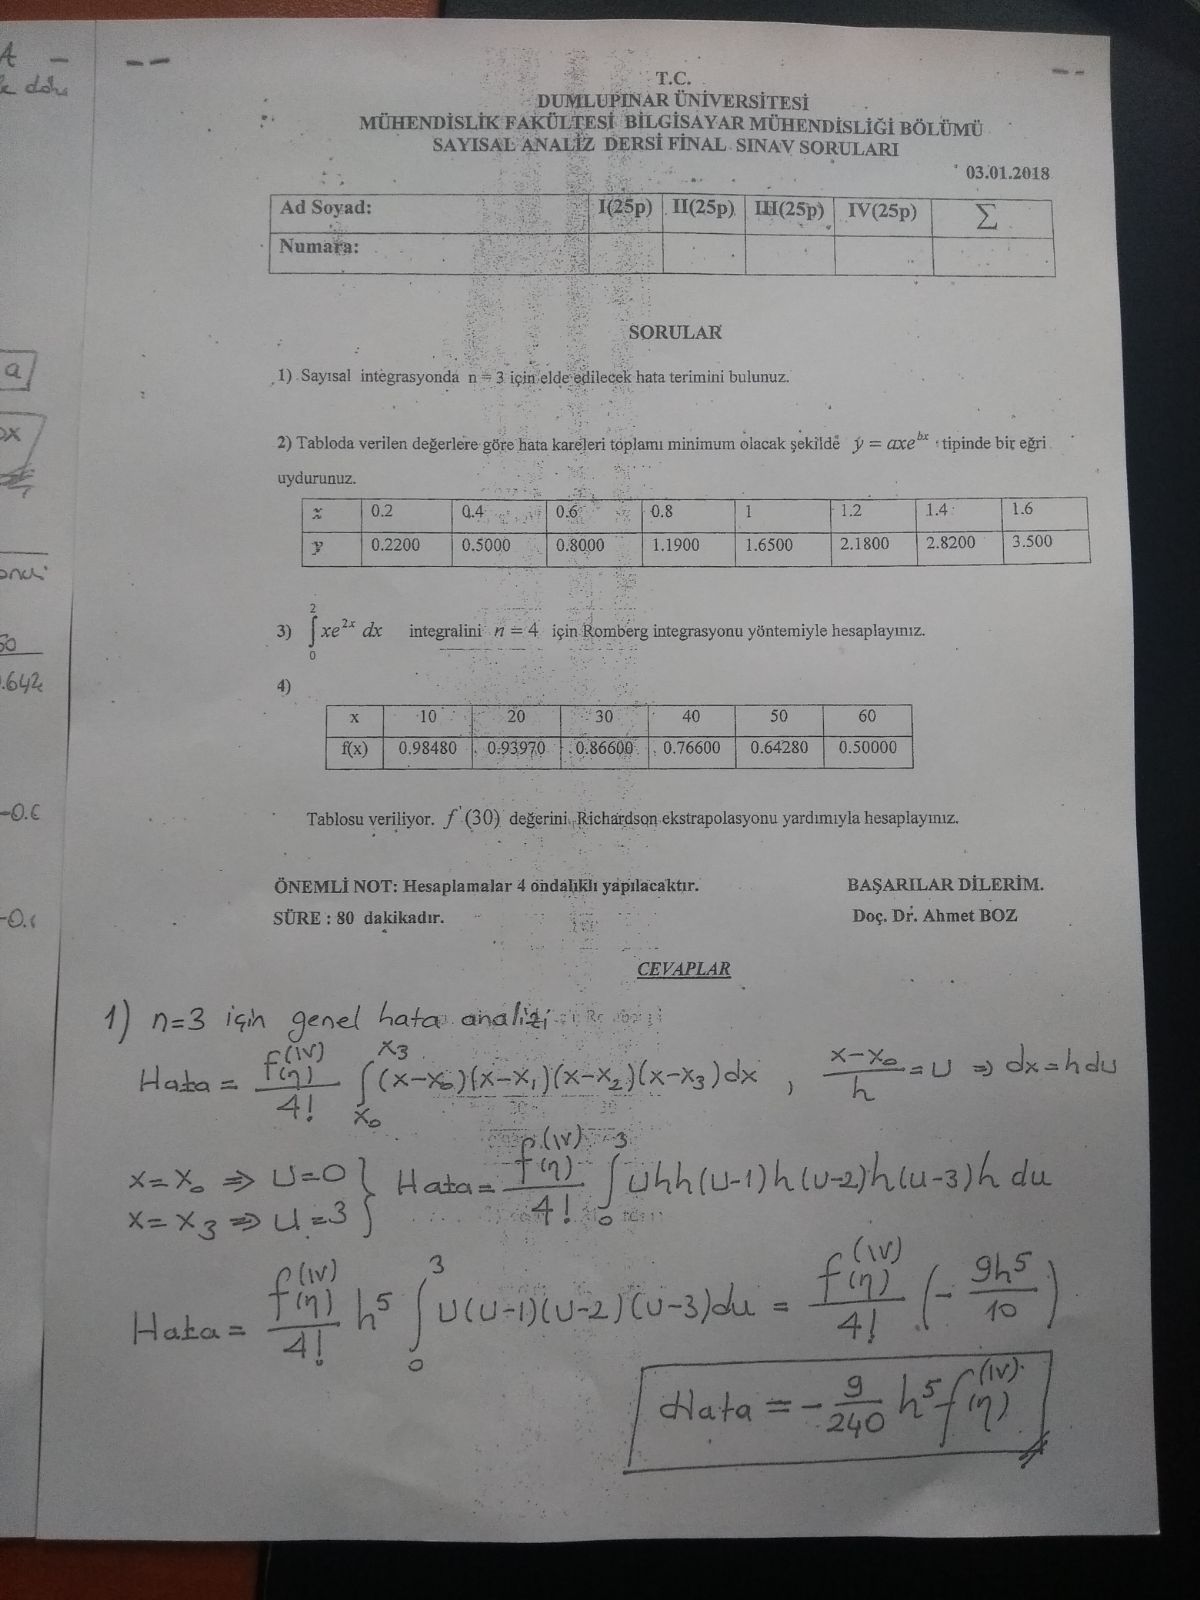 A
a
50
.642
-0.6
T.C.
DUMLUPINAR ÜNİVERSİTESİ
MÜHENDİSLİK FAKÜLTESİ BİLGİSAYAR MÜHENDİSLİĞİ BÖLÜMÜ
SAYISAL ANALİZ DERSİ FİNAL SINAV SORULARI
03.01.2018
Ad Soyad: I(25p) II(25p) III(25p) IV(25p) Σ
Numara:
SORULAR
1) Sayısal integrasyonda n = 3 için elde edilecek hata terimini bulunuz.
2) Tabloda verilen değerlere göre hata kareleri toplamı minimum olacak şekilde y = axe^{bx} tipinde bir eğri
uydurunuz.
x 0.2 0.4 0.6 0.8 1 1.2 1.4 1.6
y 0.2200 0.5000 0.8000 1.1900 1.6500 2.1800 2.8200 3.500
3) ∫_0^2 xe^{2x} dx integralini n = 4 için Romberg integrasyonu yöntemiyle hesaplayınız.
4)
x 10 20 30 40 50 60
f(x) 0.98480 0.93970 0.86600 0.76600 0.64280 0.50000
Tablosu veriliyor. f'(30) değerini Richardson ekstrapolasyonu yardımıyla hesaplayınız.
ÖNEMLİ NOT: Hesaplamalar 4 ondalıklı yapılacaktır. BAŞARILAR DİLERİM.
SÜRE : 80 dakikadır. Doç. Dr. Ahmet BOZ
CEVAPLAR
1) n=3 için genel hata analizi
Hata = f^{(IV)}(η)/4! ∫_{x_0}^{x_3} (x-x_0)(x-x_1)(x-x_2)(x-x_3)dx , (x-x_0)/h = U ⇒ dx = h du
x = x_0 ⇒ U=0 } Hata = f^{(IV)}(η)/4! ∫_0^3 Uhh(U-1)h(U-2)h(U-3)h du
x = x_3 ⇒ U=3
Hata = f^{(IV)}(η)/4! h^5 ∫_0^3 U(U-1)(U-2)(U-3)du = f^{(IV)}(η)/4! (- 9h^5/10)
Hata = - 9/240 h^5 f^{(IV)}(η)